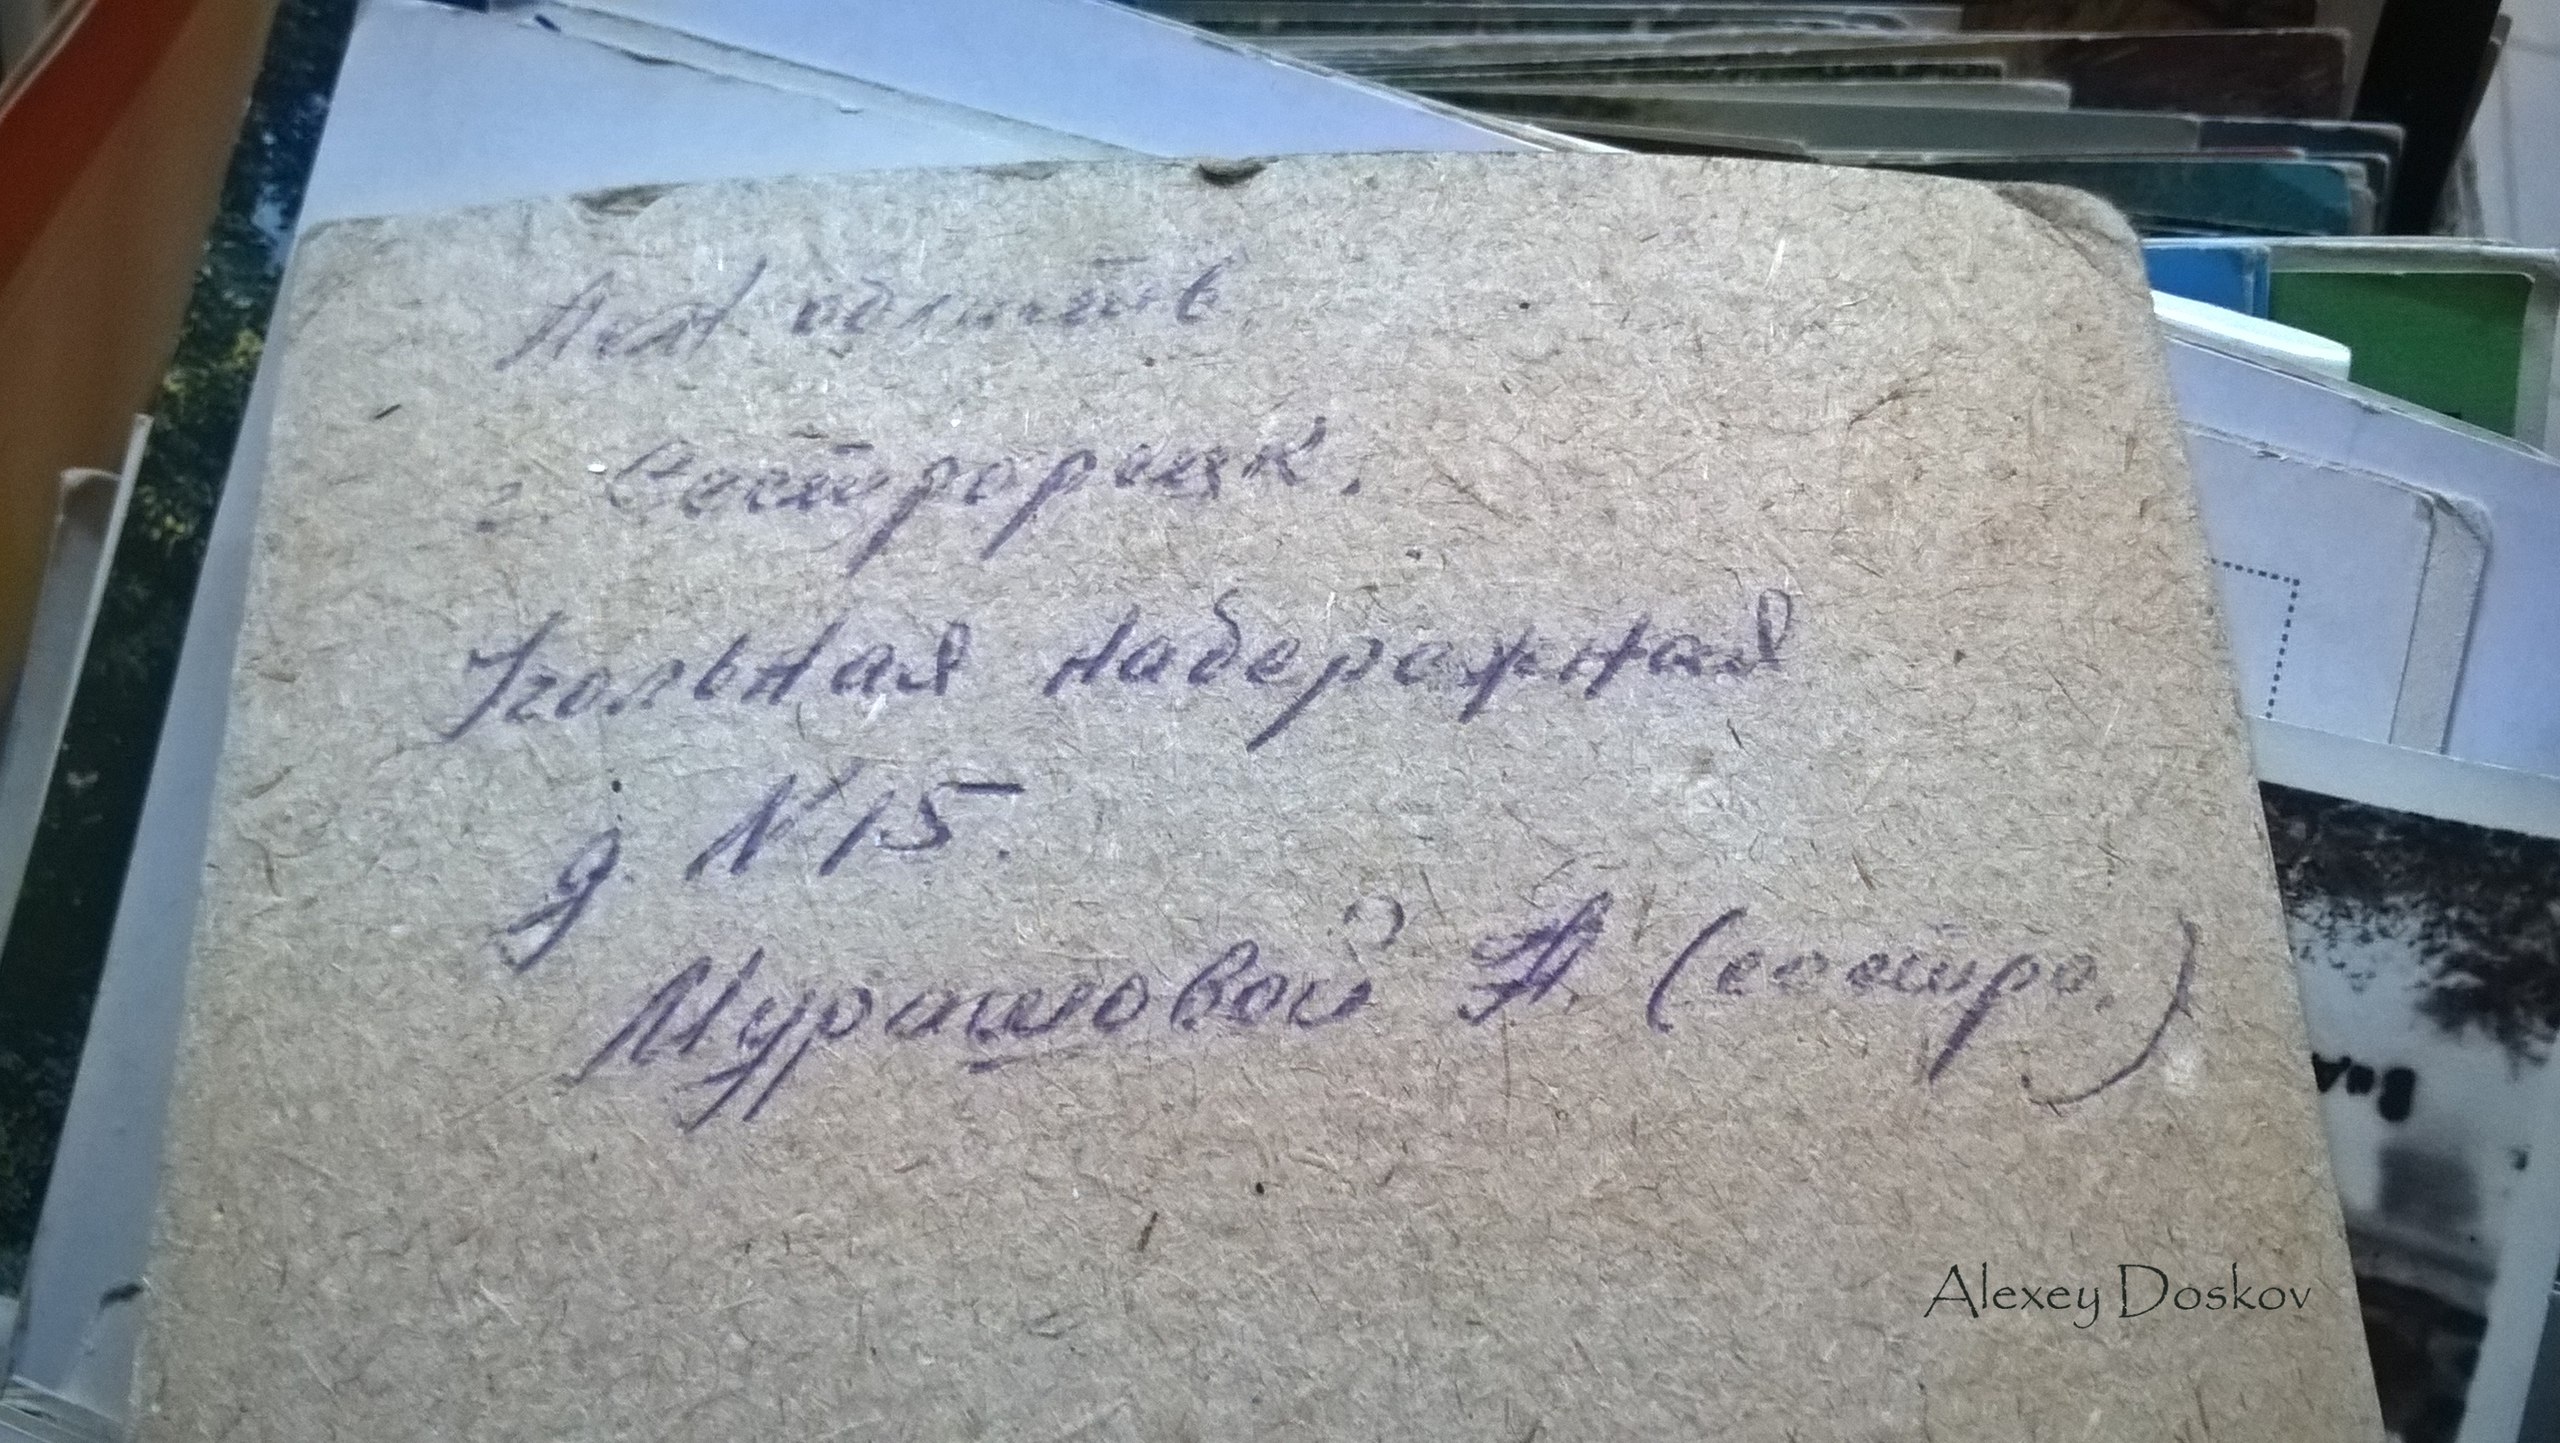 Лен область
г. Сестрорецк.
Угольная набережная
д. №15.
Мурашовой А. (сестра.)
Alexey Doskov